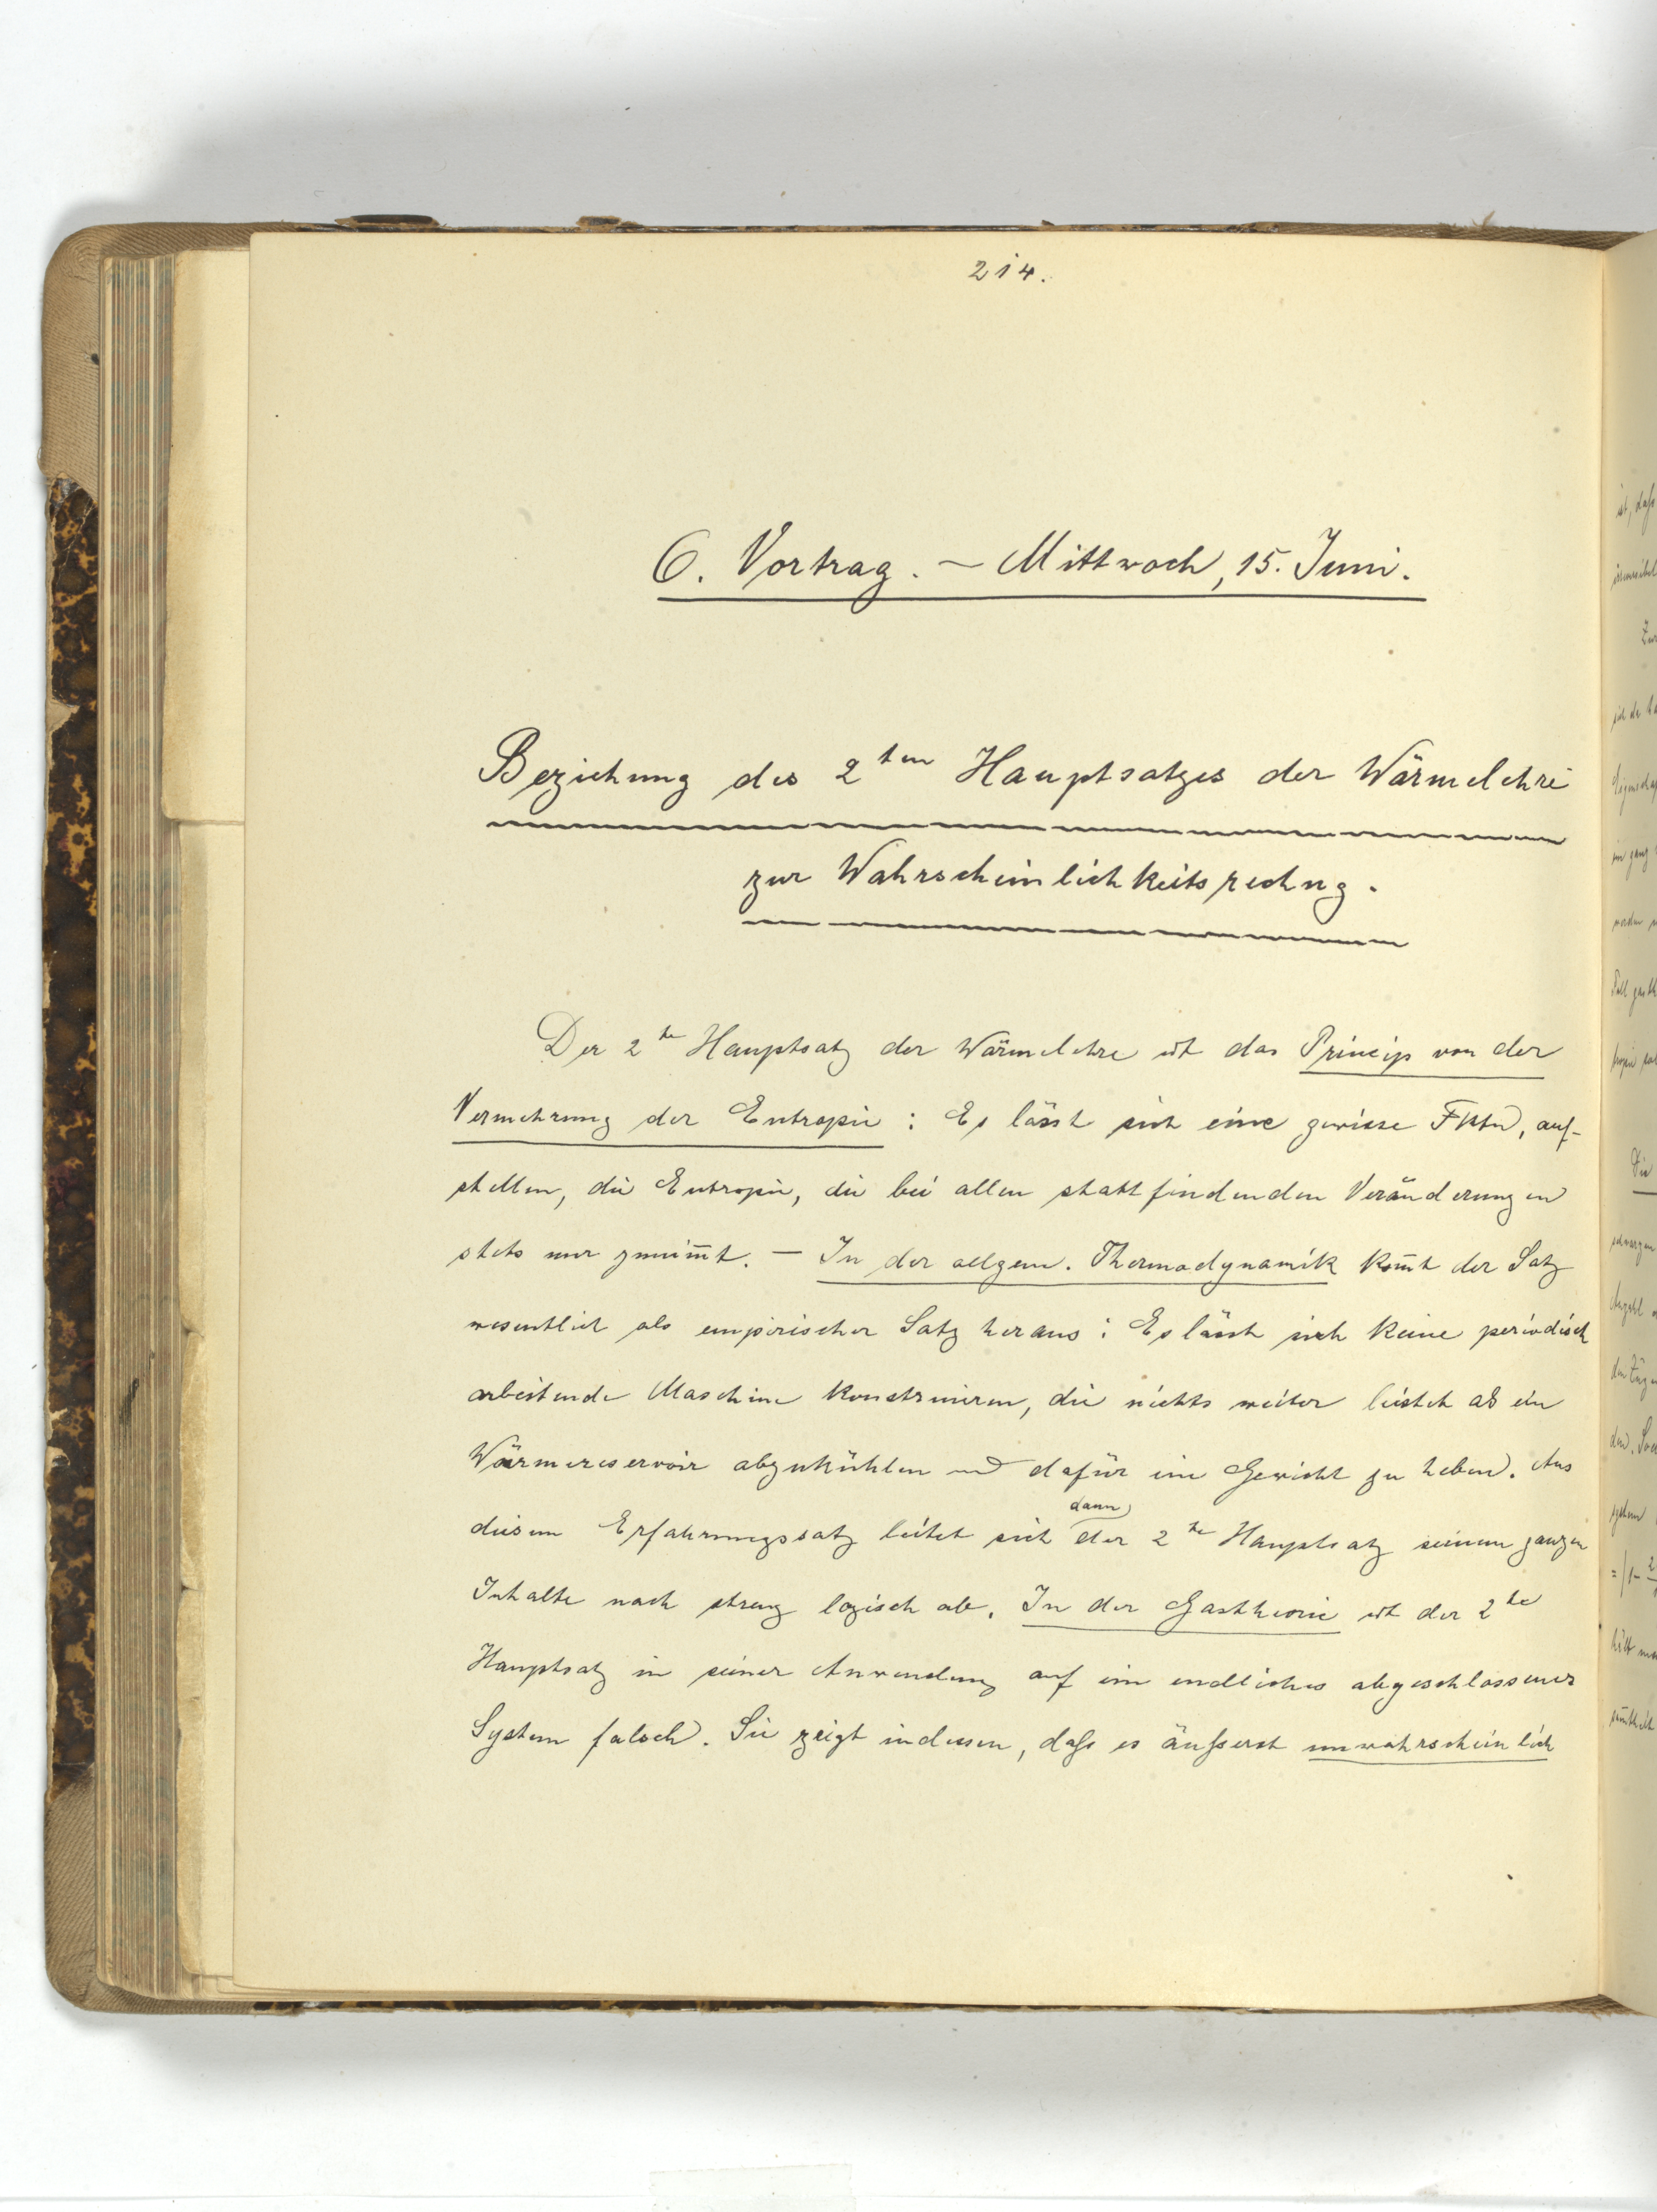 214.
6. Vortrag. — Mittwoch, 15. Juni.
Beziehung des 2ten Hauptsatzes der Wärmelehre
zur Wahrscheinlichkeitsrechng.
Der 2te Hauptsatz der Wärmelehre ist das Princip von der
Vermehrung der Entropie: Es lässt sich eine gewisse Fktn, auf-
stellen, die Entropie, die bei allen stattfindenden Veränderungen
stets nur zunim̅t. — In der allgem. Thermodynamik kom̅t der Satz
wesentlich als empirischer Satz heraus: Es lässt sich keine periodisch
arbeitende Maschine konstruieren, die nichts weiter leistet als ein
Wärmereservoir abzukühlen und dafür ein Gewicht zu heben. Aus
dann
diesem Erfahrungssatz leitet sich der 2te Hauptsatz seinem ganzen
Inhalte nach streng logisch ab. In der Gastheorie ist der 2te
Hauptsatz in seiner Anwendung auf ein endliches abgeschlossenes
System falsch. Sie zeigt indessen, daß es äußerst unwahrscheinlich
ist, daß